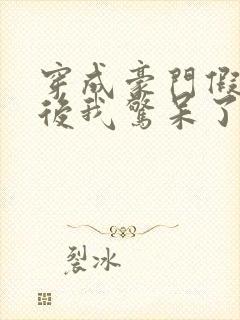 穿成豪門假
後我驚呆了
裂冰